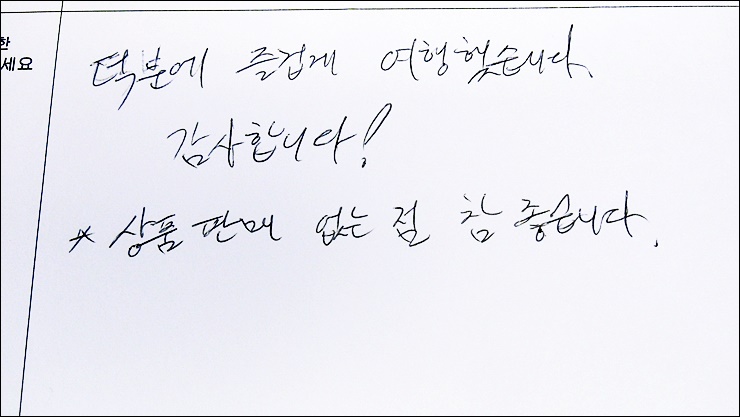 한
세요
덕분에 즐겁게 여행했습니다.
감사합니다!
* 상품판매 없는 점 참 좋습니다.